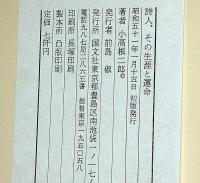 詩人、その生涯と運命
昭和五十一年一月十五日 初版発行
著者 小高根二郎©
発行者 前島 俶
発行所 国文社東京都豊島区南池袋一ノ一七
電話九八七局二八六五番 振替東京一九五〇五八
印刷所 長塚印刷
製本所 凸版印刷
定価 七阡円